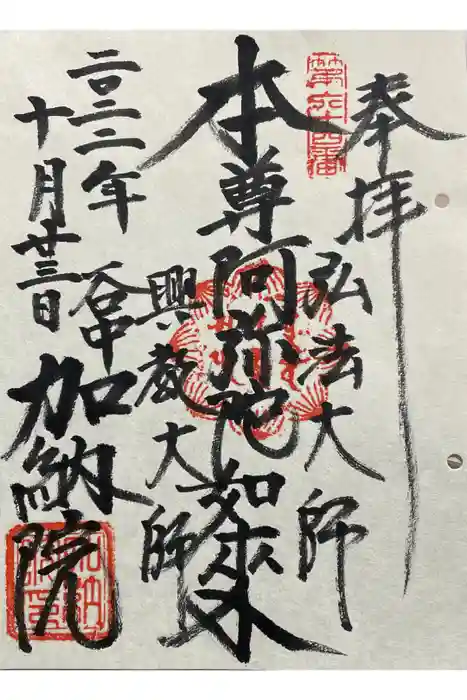 奉拝
第六十四番
弘法大師
本尊阿弥陀如来
興教大師
二〇二二年
十月廿三日
谷中
加納院